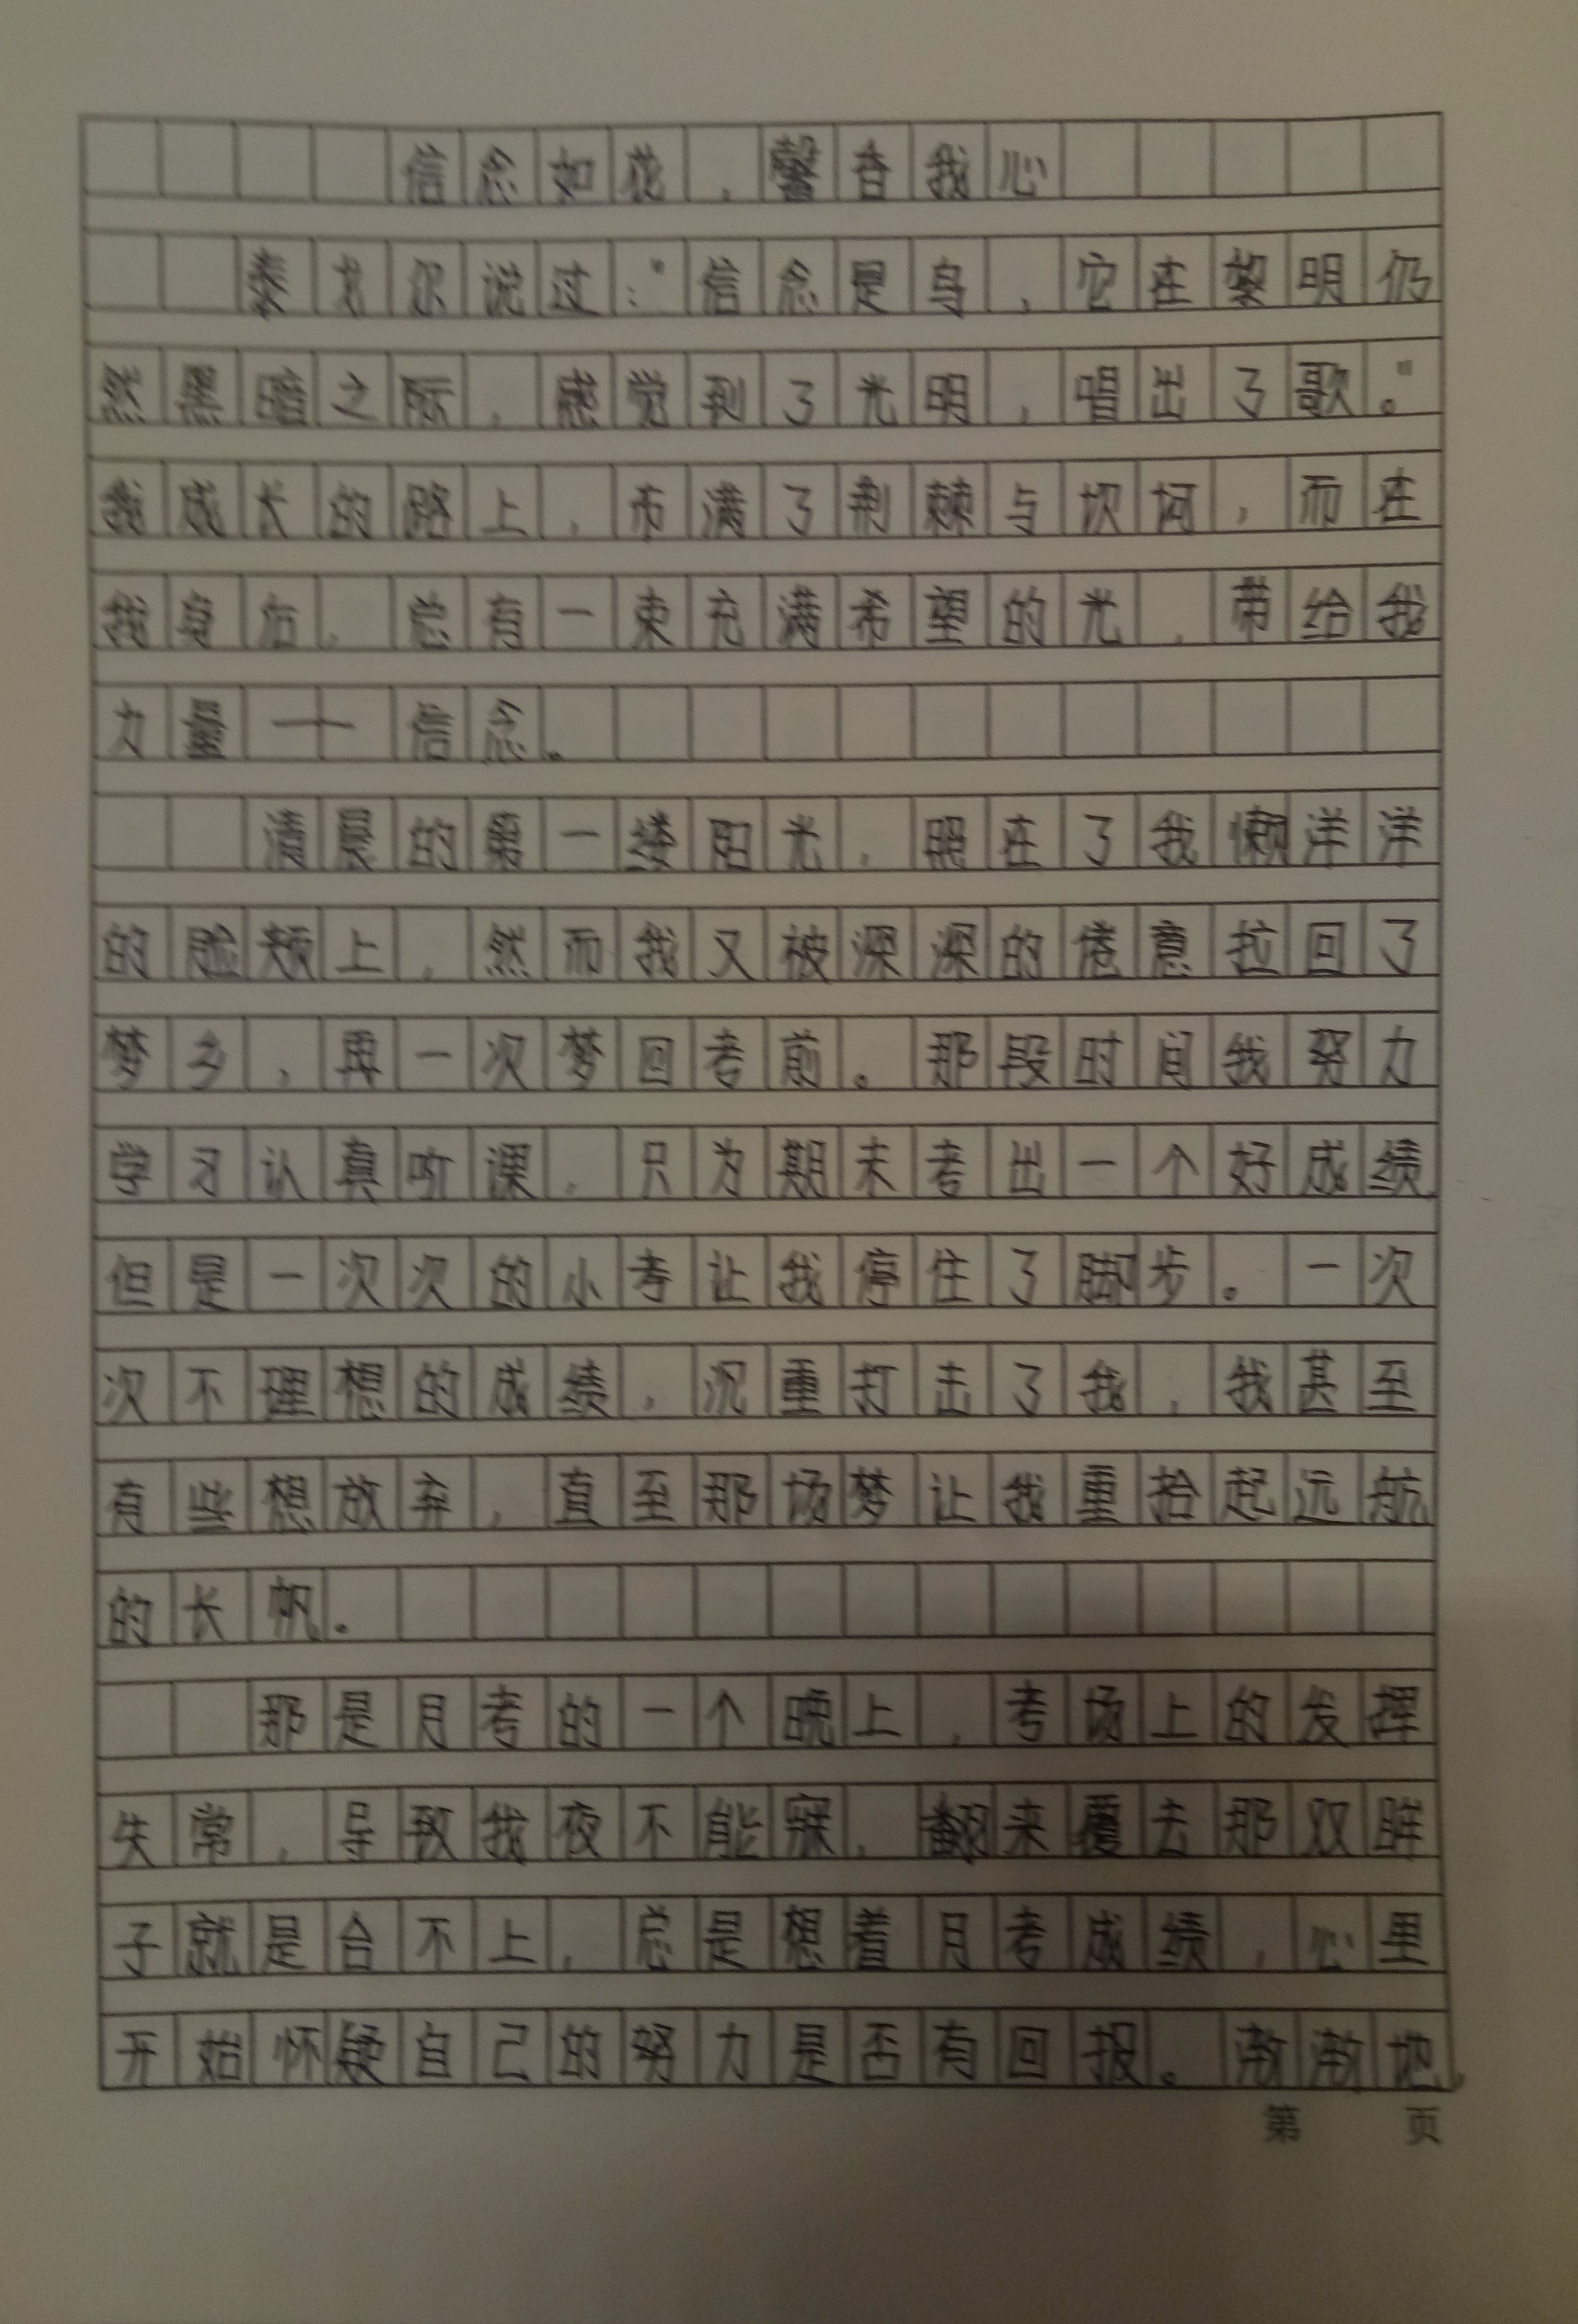 信念如花，馨香我心
泰戈尔说过："信念是鸟，它在黎明仍
然黑暗之际，感觉到了光明，唱出了歌。"
我成长的路上，布满了荆棘与坎坷，而在
我身后，总有一束充满希望的光，带给我
力量——信念。
清晨的第一缕阳光，照在了我懒洋洋
的脸颊上，然而我又被深深的倦意拉回了
梦乡，再一次梦回考前。那段时间我努力
学习认真听课，只为期末考出一个好成绩，
但是一次次的小考让我停住了脚步。一次
次不理想的成绩，沉重打击了我，我甚至
有些想放弃，直至那场梦让我重拾起远航
的长帆。
那是月考的一个晚上，考场上的发挥
失常，导致我夜不能寐，翻来覆去那双眸
子就是合不上，总是想着月考成绩，心里
开始怀疑自己的努力是否有回报。渐渐地，
第 页